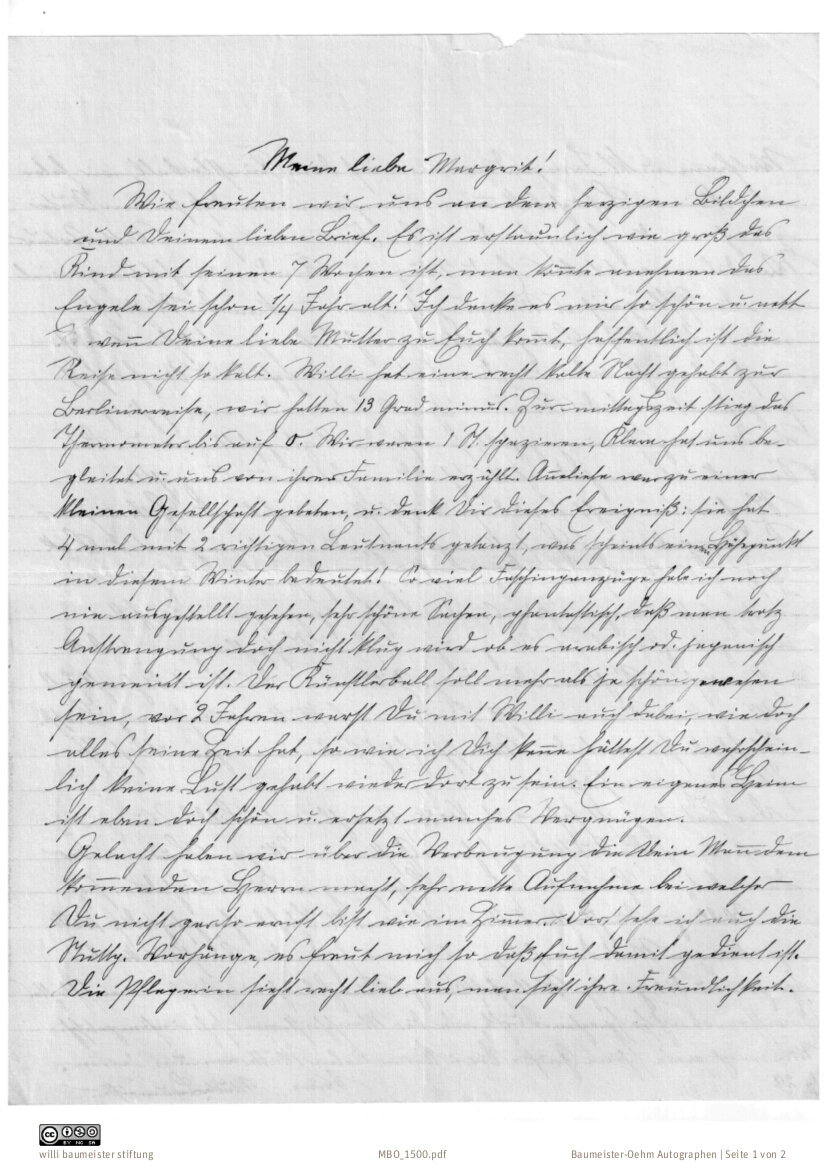 Meine liebe Margrit!
Wie freuten wir uns an dem herzigen Bildchen
und Deinem lieben Brief. Es ist erstaunlich wie groß das
Kind mit seinen 7 Wochen ist, man könnte annehmen das
Engele sei schon 1/4 Jahr alt! Ich denke es mir so schön u. nett
wenn Deine liebe Mutter zu Euch kommt, hoffentlich ist die
Reise nicht so kalt. Willi hat eine recht kalte Nacht gehabt zur
Berlinerreise, wir hatten 13 Grad minus. Zur mittagszeit stieg das
Thermometer bis auf 0. Wir waren 1 St. spazieren, Klara hat uns be-
gleitet u. uns von ihrer Familie erzählt. Anneliese war zu einer
kleinen Gesellschaft gebeten, u. denk Dir dieses Ereigniß: sie hat
4 mal mit 2 richtigen Leutnants getanzt, was scheints einen Höhepunkt
in diesem Winter bedeutet! So viel Faschinganzüge habe ich noch
nie ausgestellt gesehen, sehr schöne Sachen, phantastisch, daß man trotz
Anstrengung doch nicht klug wird ob es arabisch od. japanisch
gemeint ist. Der Künstlerball soll mehr als je schön gewesen
sein, vor 2 Jahren warst Du mit Willi auch dabei, wie doch
alles seine Zeit hat, so wie ich Dich kenne hättest Du wahrschein-
lich keine Lust gehabt wieder dort zu sein. Ein eigenes Heim
ist eben doch schön u. ersetzt manches Vergnügen.
Gelacht haben wir über die Verbeugung die Dein Mann dem
kommenden Herrn macht, sehr nette Aufnahme bei welcher
Du nicht gar so ernst bist wie im Zimmer. Dort sehe ich auch die
Stuttg. Vorhänge, es freut mich so daß Euch damit gedient ist.
Die Pflegerin sieht recht lieb aus, man sieht ihre Freundlichkeit.
willi baumeister stiftung
MBO_1500.pdf
Baumeister-Oehm Autographen | Seite 1 von 2